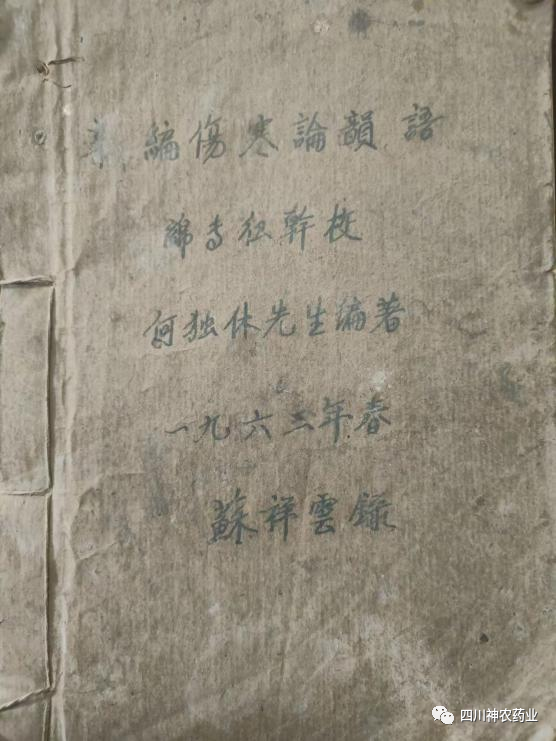 新編傷寒論韻語
綿专红幹校
何独休先生编著
一九六三年春
蘇祥雲錄
四川神农药业